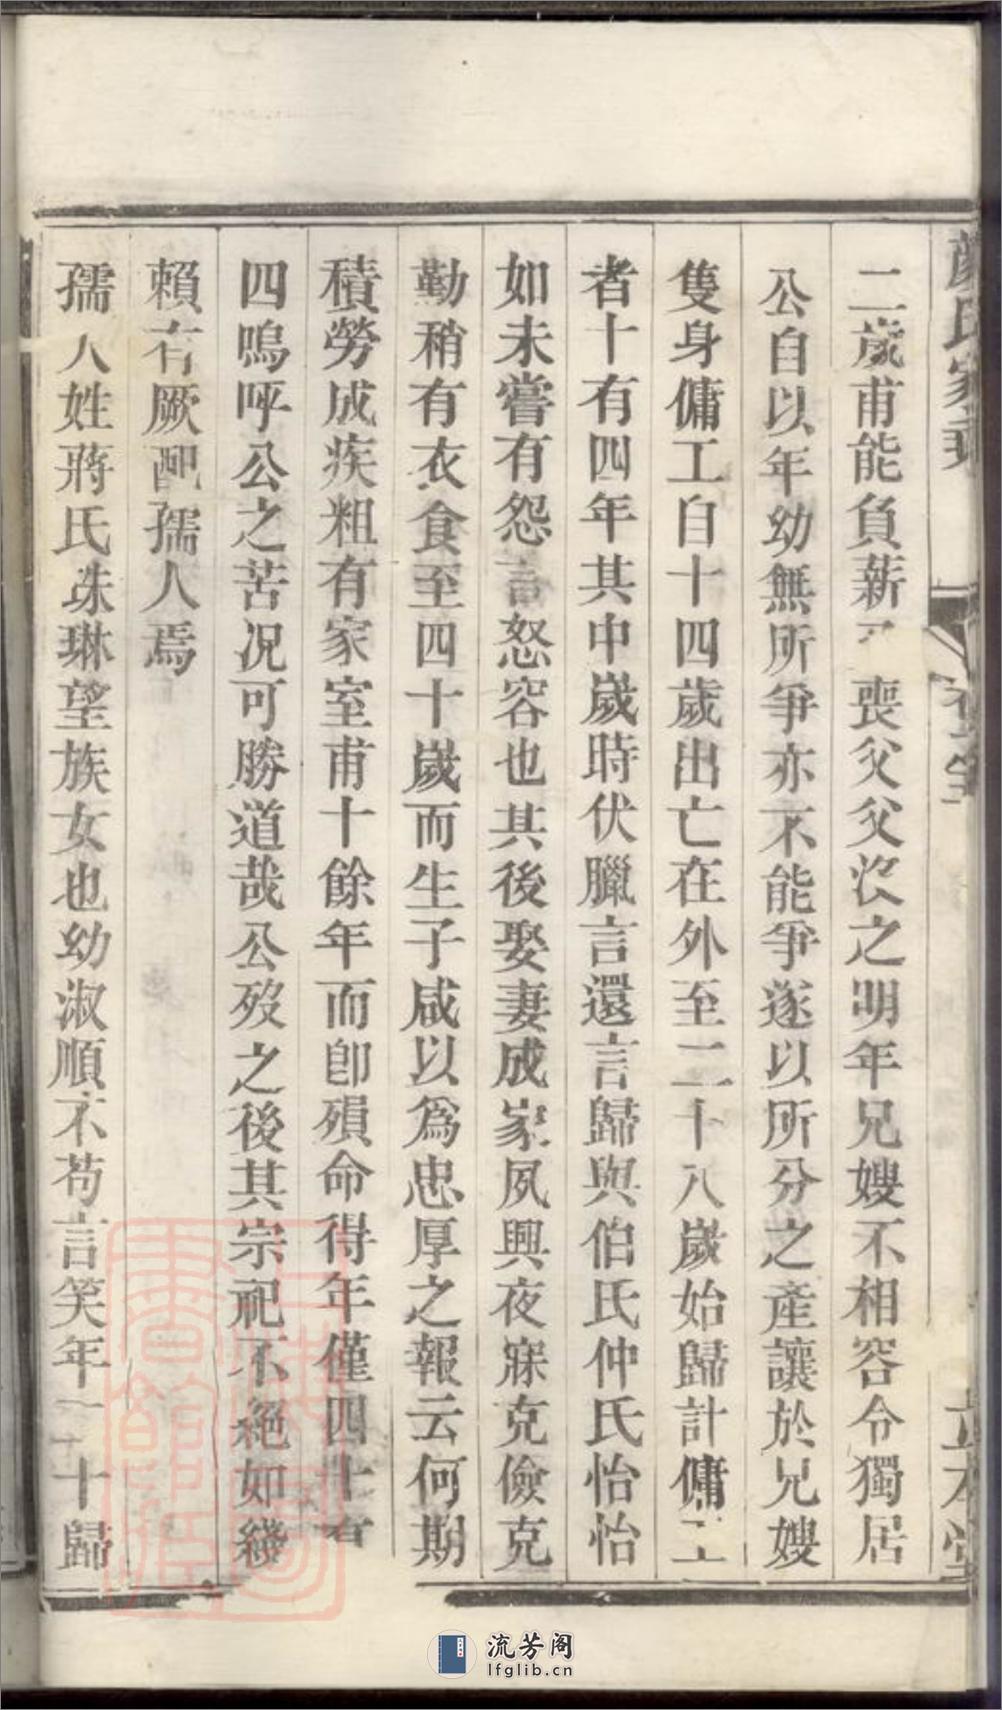 二歲甫能負薪又喪父父沒之明年兄嫂不相容令獨居
公自以年幼無所爭亦不能爭遂以所分之產讓於兄嫂
隻身傭工自十四歲出亡在外至二十八歲始歸計傭工
者十有四年其中歲時伏臘言還言歸與伯氏仲氏怡怡
如未嘗有怨言怒容也其後娶妻成家夙興夜寐克儉克
勤稍有衣食至四十歲而生子咸以為忠厚之報云何期
積勞成疾粗有家室甫十餘年而卽殞命得年僅四十有
四嗚呼公之苦況可勝道哉公歿之後其宗祀不絕如綫
賴有厥配孺人焉
孺人姓蔣氏珠琳望族女也幼淑順不苟言笑年二十歸
上海圖書館藏
流芳阁
lfglib.cn